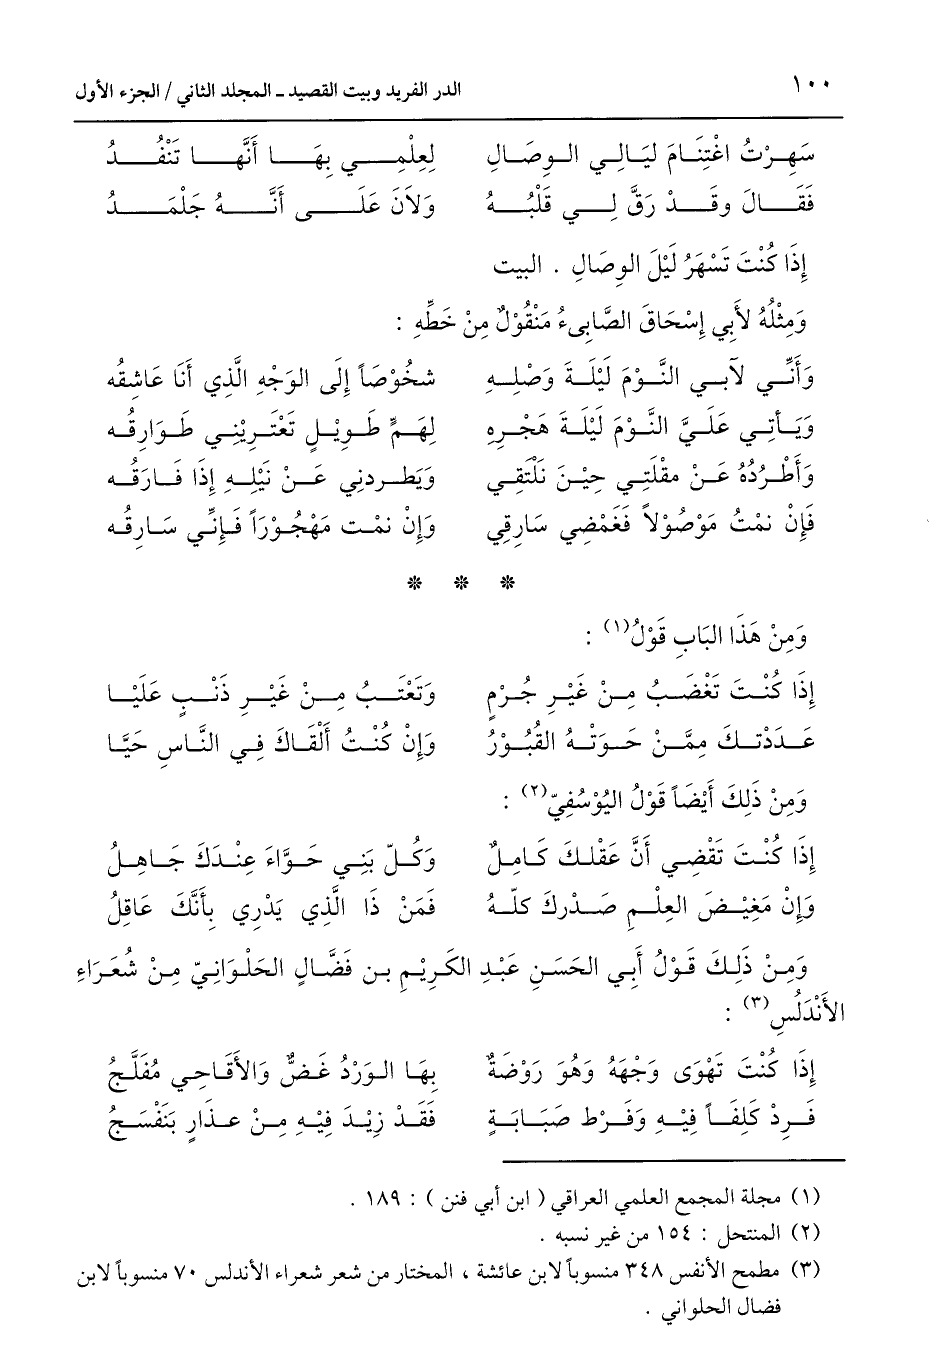 ١٠٠ الدر الفريد وبيت القصيد ـ المجلد الثاني / الجزء الأول
سَهِرْتُ اغْتِنَامَ لَيَالِي الوِصَالِ لِعِلْمِي بِهَا أَنَّهَا تَنْفُدُ
فَقَالَ وَقَدْ رَقَّ لِي قَلْبُهُ وَلاَنَ عَلَى أَنَّهُ جَلْمَدُ
إِذَا كُنْتَ تَسْهَرُ لَيْلَ الوِصَالِ . البيت
وَمِثْلُهُ لأَبِي إِسْحَاقَ الصَّابِيءُ مَنْقُوْلٌ مِنْ خَطِّهِ :
وَأَنِّي لآبي النَّوْمَ لَيْلَةَ وَصْلِهِ شخُوْصَاً إِلَى الوَجْهِ الَّذِي أَنَا عَاشقُه
وَيَأْتِي عَلَيَّ النَّوْمَ لَيْلَةَ هَجْرِهِ لِهَمٍّ طَوِيْلٍ تَعْتَرِيْنِي طَوَارِقُه
وَأطْرُدُهُ عَنْ مقْلَتِي حِيْنَ نَلْتَقِي وَيَطْردنِي عَنْ نَيْلِهِ إذَا فَارَقُه
فَإِنْ نمْتُ مَوْصُوْلاً فَغَمْضِي سَارِقِي وَإِنْ نمْت مَهْجُوْرَاً فَإِنِّي سَارِقُه
* * *
وَمِنْ هَذَا البَابِ قَوْلُ(١) :
إِذَا كُنْتَ تَغْضَبُ مِنْ غَيْرِ جُرْمٍ وَتَعْتَبُ مِنْ غَيْرِ ذَنْبٍ عَلَيَّا
عَدَدْتكَ مِمَّنْ حَوَتْهُ القُبُوْرُ وَإِنْ كُنْتُ أَلْقَاكَ فِي النَّاسِ حَيَّا
وَمِنْ ذَلِكَ أَيْضَاً قَوْلُ اليُوْسُفِيّ(٢) :
إِذَا كُنْتَ تَقْضِي أَنَّ عَقْلكَ كَامِلٌ وَكُلّ بَنِي حَوَّاءَ عِنْدَكَ جَاهِلُ
وَإِنْ مَغِيْضَ العِلْمِ صَدْركَ كلّهُ فَمَنْ ذَا الَّذِي يَدْرِي بِأَنَّكَ عَاقِلُ
وَمِنْ ذَلِكَ قَوْلُ أَبِي الحَسَنِ عَبْدِ الكَرِيْمِ بن فَضَّالٍ الحَلْوَانِيّ مِنْ شُعَرَاءِ
الأَنْدَلُسِ(٣) :
إِذَا كُنْتَ تَهْوَى وَجْهَهُ وَهُوَ رَوْضَةٌ بِهَا الوَرْدُ غَضٌّ وَالأَقَاحِي مُفَلَّجُ
فَرِدْ كَلِفَاً فِيْهِ وَفَرْط صَبَابَةٍ فَقَدْ زِيْدَ فِيْهِ مِنْ عذَارٍ بَنَفْسَجُ
(١) مجلة المجمع العلمي العراقي ( ابن أبي فنن ) : ١٨٩ .
(٢) المنتحل : ١٥٤ من غير نسبه .
(٣) مطمح الأنفس ٣٤٨ منسوباً لابن عائشة ، المختار من شعر شعراء الأندلس ٧٠ منسوباً لابن
فضال الحلواني .